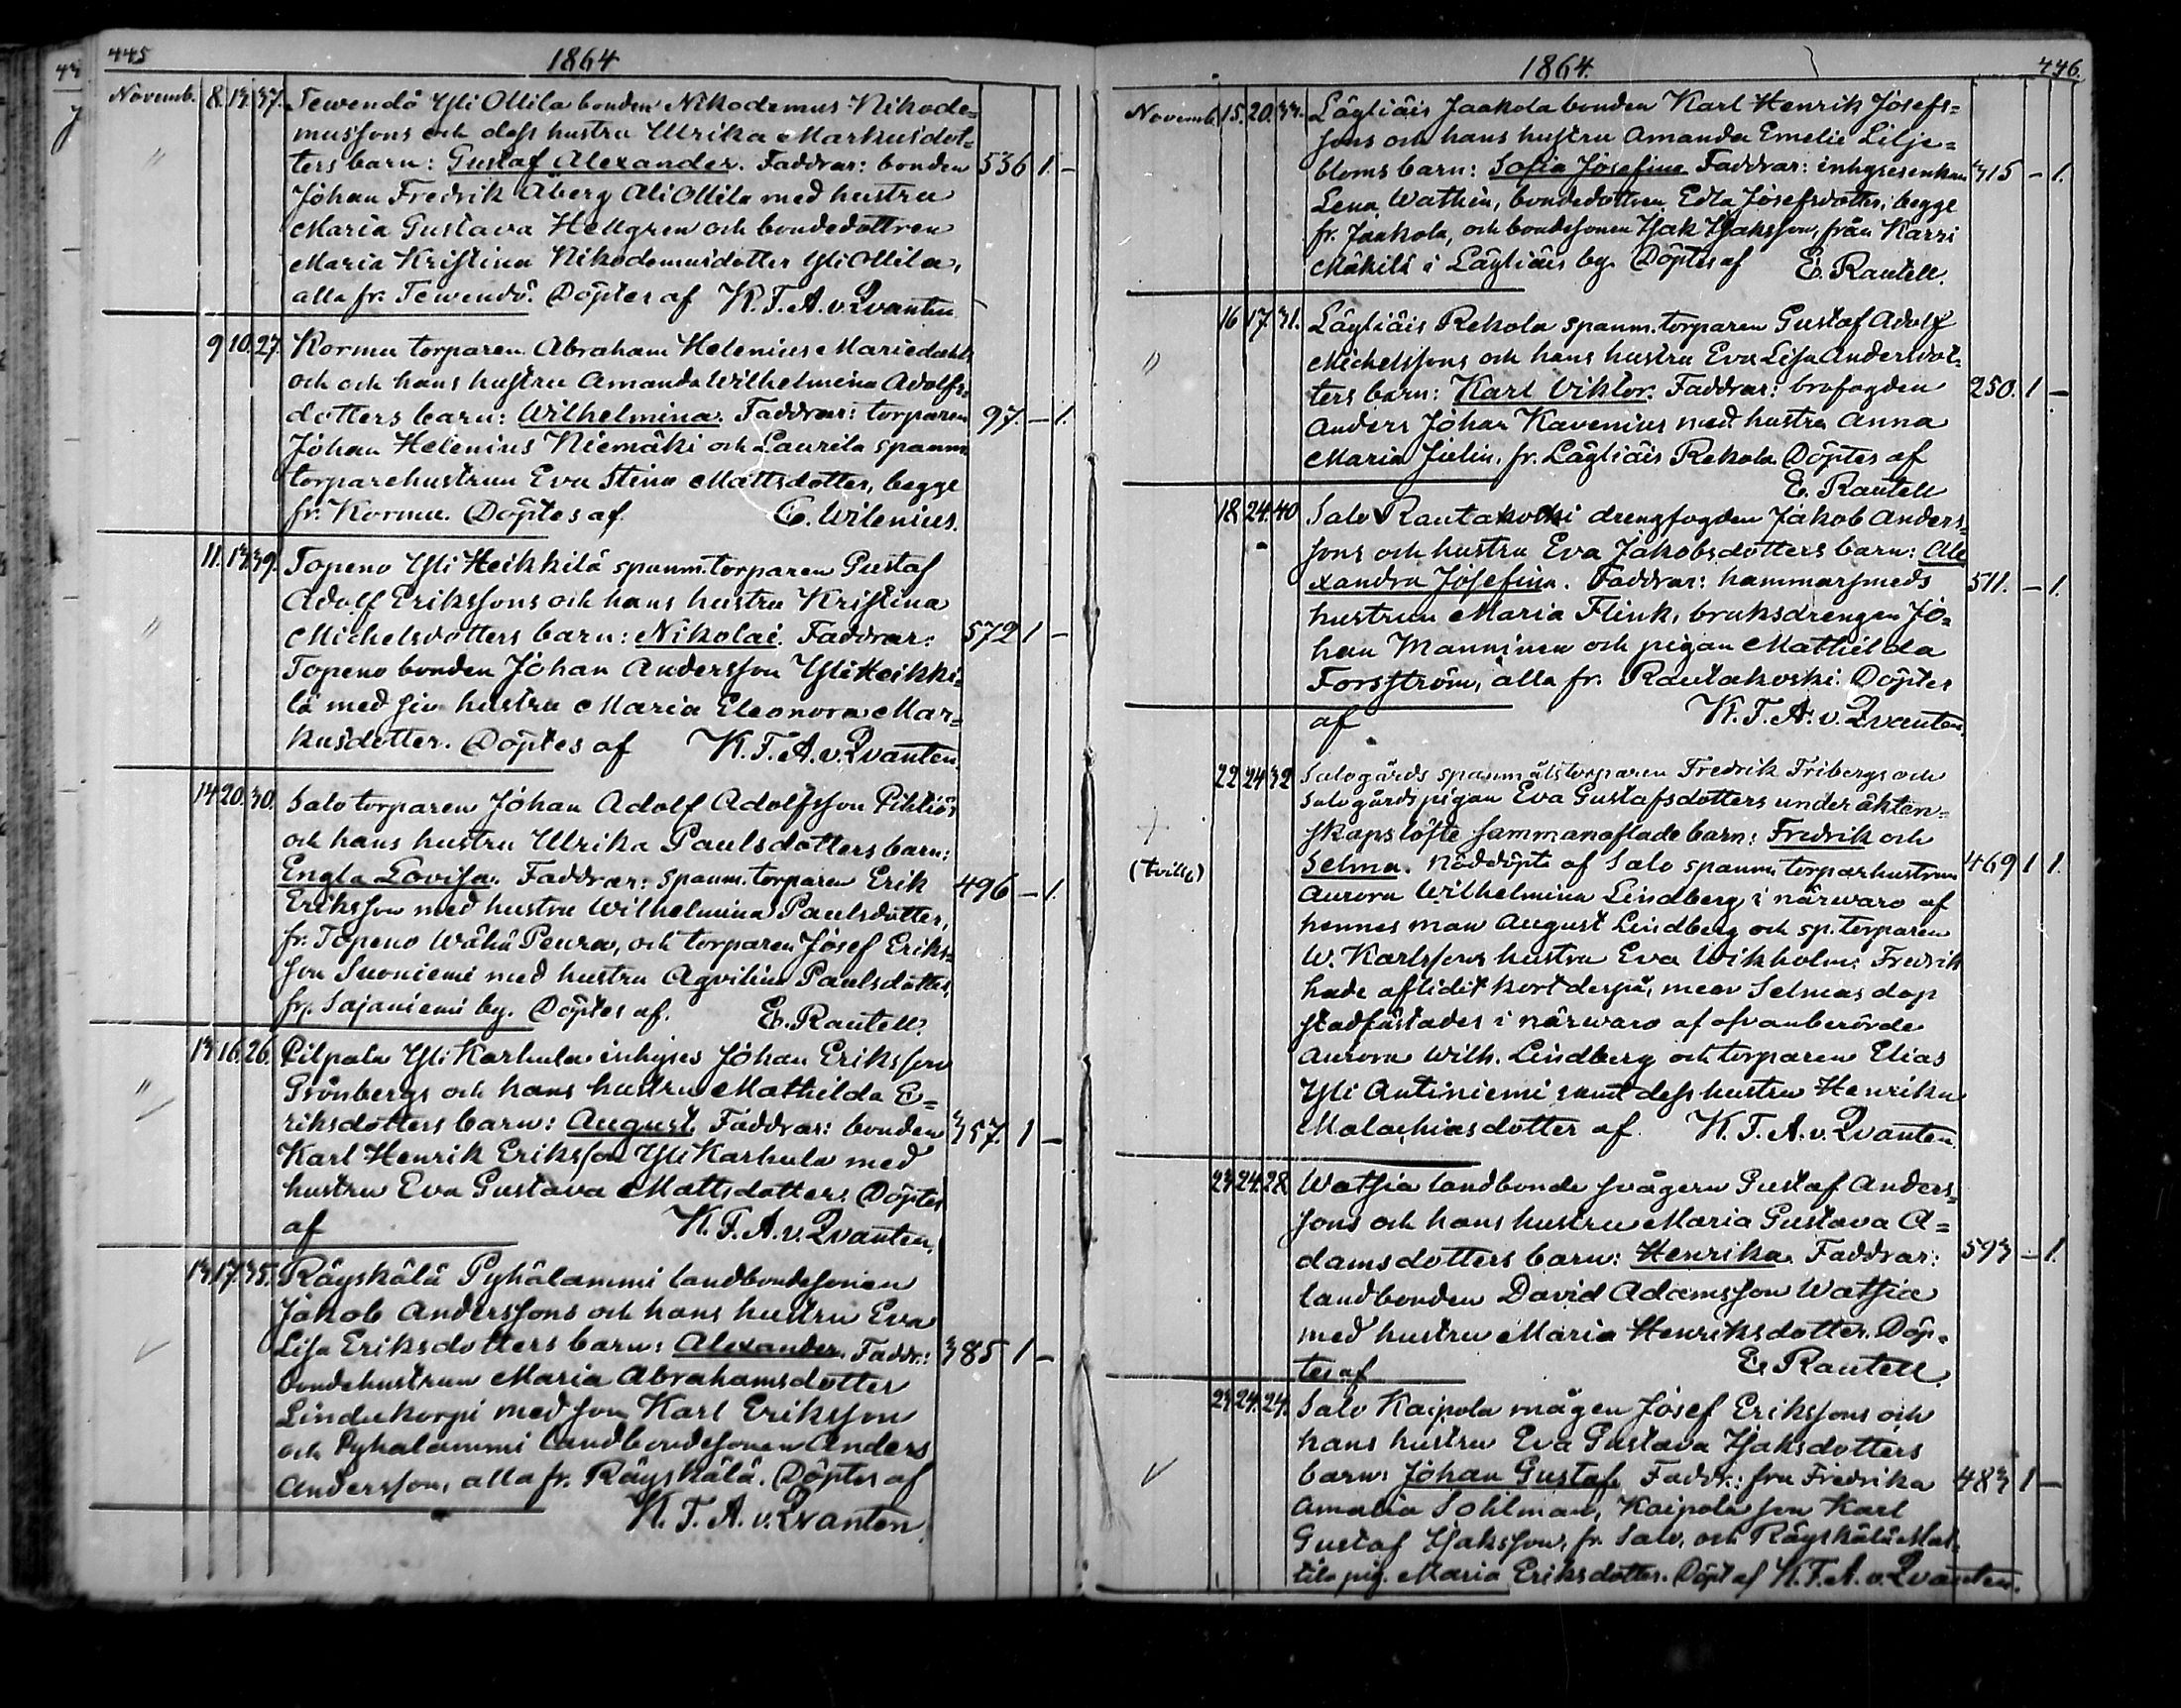 445
1864
Novemb. 8. 13. 37. Tewendö Yli Ollila bonden Nikodemus Nikode=
mussons och dess hustru Ulrika Markusdot=
ters barn: Gustaf Alexander. Faddrar: bonden 536 1. –
Johan Fredrik Åberg Ali Ollila med hustru
Maria Gustava Hellgren och bondedottren
Maria Kristina Nikodemusdotter Yli Ollila,
alla fr. Tewendö. Döptes af K. F. A. v. Qvanten
9 10. 27. Kormu torparen Abraham Helenius Mariedahls
och och hans hustru Amanda Wilhelmina Adolfs=
dotters barn: Wilhelmina. Faddrar: torparen 97. – 1.
Johan Helenius Niemäki och Laurila spanm.
torparehustrun Eva Stina Mattsdotter, begge
fr. Kormu. Döptes af C. Wilenius.
11. 13. 39. Topeno Yli Heikkilä spanm. torparen Gustaf
Adolf Erikssons och hans hustru Kristina
Michelsdotters barn: Nikolai. Faddrar: 572 1 –
Topeno bonden Johan Andersson Yli Heikki=
lä med sin hustru Maria Eleonora Mar=
kusdotter. Döptes af K. F. A. v. Qvanten.
14 20. 30. Salo torparen Johan Adolf Adolfsson Pihliös
och hans hustru Ulrika Paulsdotters barn:
Engla Lovisa. Faddrar: spanm. torparen Erik 496 – 1.
Eriksson med hustru Wilhelmina Paulsdotter,
fr. Topeno Wähä Peura, och torparen Josef Eriks=
son Suoniemi med hustru Agvilina Paulsdotter,
fr. Sajaniemi by. Döptes af. E. Rautell.
13 16. 26. Pilpala Yli Karhula inhyses Johan Eriksson
Grönbergs och hans hustru Mathilda E=
riksdotters barn: August. Faddrar: bonden 357. 1 –
Karl Henrik Eriksson Yli Karhula med
hustru Eva Gustava Mattsdotter. Döptes
af K. F. A. v. Qvanten.
13 17. 35. Räyskälä Pyhälammi landbondesonen
Jakob Anderssons och hans hustru Eva
Lisa Eriksdotters barn: Alexander. Faddr.: 385 1 –
bondehustrun Maria Abrahamsdotter
Lindukorpi med son Karl Eriksson
och Pyhälammi landbondesonen Anders
Andersson, alla fr. Räyskälä. Döptes af
K. F. A. v. Qvanten.
1864.
446.
Novemb. 15. 20. 33. Läyliäis Jaakola bonden Karl Henrik Josefs=
sons och hans hustru Amanda Emelie Lilje=
bloms barn: Sofia Josefina. Faddrar: inhysesenkan 315 – 1.
Lena Wathén, bondedottren Edla Josefsdotter, begge
fr. Jaakola, och bondesonen Isak Isaksson, från Karri
Mäkilä i Läyliäis by. Döptes af E. Rautell.
16 17. 31. Läyliäis Rekola spanm. torparen Gustaf Adolf
Michelssons och hans hustru Eva Lisa Andersdot=
ters barn: Karl Viktor. Faddrar: brofogden 250. 1 –
Anders Johan Kavenius med hustru Anna
Maria Julin, fr. Läyliäis Rekola. Döptes af
E. Rautell
18 24. 40 Salo Rautakoski drengfogden Jakob Anders=
sons och hustru Eva Jakobsdotters barn: Ale
xandra Josefina. Faddrar: hammarsmeds 511. – 1.
hustrun Maria Flink, bruksdrengen Jo=
han Manninen och pigan Mathilda
Forsström, alla fr. Rautakoski. Döptes
af K. F. A. v. Qvanten.
22 24 32 Salogårds spanmålstorparen Fredrik Fribergs och
Salogårdspigan Eva Gustafsdotters under äkten=
skapslöfte sammanaflade barn: Fredrik och
(tvill.) Selma. Nöddöpte af Salo spanm. torparhustrun 469 1 1.
Aurora Wilhelmina Lindberg i närwaro af
hennes man August Lindberg och sp. torparen
W. Karlssons hustru Eva Wikholm. Fredrik
hade aflidit kort derpå, men Selmas dop
stadfästades i närwaro af ofvanberörde
Aurora Wilh. Lindberg och torparen Elias
Yli Antiniemi samt dess hustru Henrika
Malachiasdotter af K. F. A. v. Qvanten.
23 24. 28 Watsia landbonde svågern Gustaf Anders=
sons och hans hustru Maria Gustava A=
damsdotters barn: Henrika. Faddrar: 593 – 1.
landbonden David Adamsson Watsia
med hustru Maria Henriksdotter. Döp=
tes af E. Rautell.
23 24. 24. Salo Kaipola mågen Josef Erikssons och
hans hustru Eva Gustava Isaksdotters
barn: Johan Gustaf. Faddr.: fru Fredrika 483 1 –
Amalia Sohlman, Kaipola son Karl
Gustaf Isaksson, fr. Salo, och Räyskälä Mat=
tila pig. Maria Eriksdotter. Döpt af K. F. A. v. Qvanten.